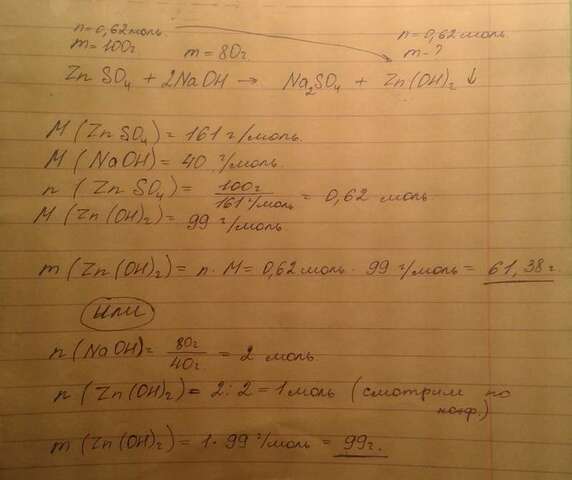 n=0,62 моль. n=0,62 моль.
m=100г m=80г. m-?
ZnSO₄ + 2NaOH → Na₂SO₄ + Zn(OH)₂ ↓
M(ZnSO₄)=161 г/моль.
M(NaOH)=40 г/моль.
n(ZnSO₄)= 100г / 161 г/моль = 0,62 моль.
M(Zn(OH)₂)= 99 г/моль
m(Zn(OH)₂)= n·M=0,62моль·99 г/моль= 61,38г.
или
n(NaOH)= 80г / 40г. = 2 моль.
n(Zn(OH)₂)= 2:2=1моль (смотрим по
коэф.)
m(Zn(OH)₂)= 1·99 г/моль= 99г.